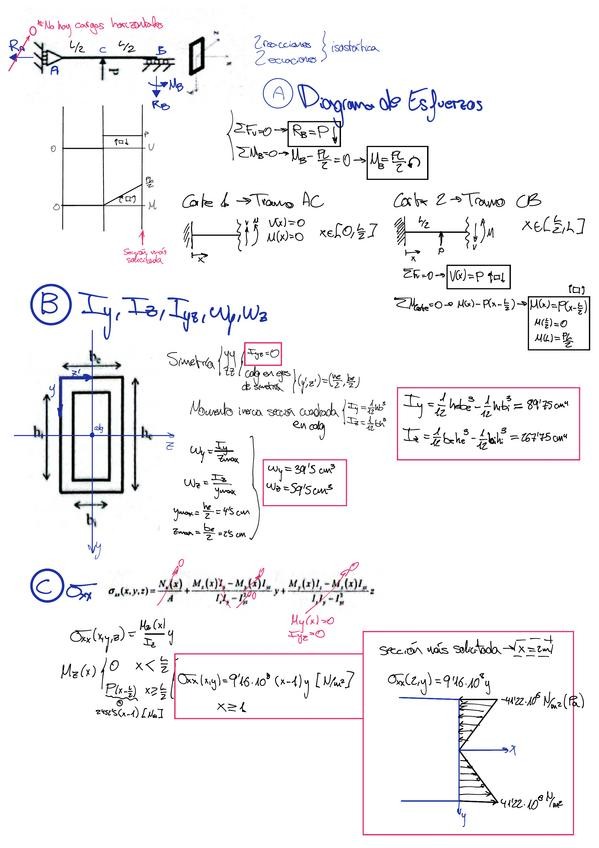 *No hay cargas horizontales
0
R_A
L/2 C L/2 B
A
P
M_B
R_B
2 reacciones
2 ecuaciones } isostática
A Diagrama de Esfuerzos
ΣFv=0 → R_B=P
ΣM_B=0 → M_B - PL/2 = 0 → M_B = PL/2
0 P V
0 PL/2 M
Sección más
solicitada
Corte 1 → Tramo AC
V(x)=0
M(x)=0 x∈[0, L/2]
x
Corte 2 → Tramo CB
L/2 P V M x∈[L/2, L]
x
ΣFv=0 → V(x)=P
ΣMcorte=0 → M(x)-P(x-L/2) M(x)=P(x-L/2)
M(L/2)=0
M(L)=PL/2
B Iy, Iz, Iyz, ωy, ωz
Simetría { yy zz { Iyz=0
cdg en ejes
de simetría } (y',z')=(he/2, be/2)
Momento inercia sección cuadrada
en cdg { Iy=1/12 hb³
Iz=1/12 bh³
Iy = 1/12 he be³ - 1/12 hi bi³ = 89'75 cm⁴
Iz = 1/12 be he³ - 1/12 bi hi³ = 267'75 cm⁴
b_e
z'
y'
h_i cdg h_e
z
b_i
y
ωy = Iy/zmax
ωz = Iz/ymax
ymax = he/2 = 4'5 cm
zmax = be/2 = 2'5 cm
ωy = 39'5 cm³
ωz = 59'5 cm³
C σxx
σ_xx(x,y,z) = N_x(x)/A + M_z(x)I_y - M_y(x)I_yz / I_y I_z - I²_yz y + M_y(x)I_z - M_z(x)I_yz / I_z I_y - I²_yz z
My(x)=0
Iyz=0
σxx(x,y,z) = Mz(x)/Iz y
Mz(x) { 0 x < L/2
P(x-L/2) x ≥ L/2
σxx(x,y) = 9'16·10⁸ (x-1) y [N/m²]
x ≥ 1
sección más solicitada → x=2m
σxx(2,y) = 9'16·10⁸ y
-41'22·10⁶ N/m² (Pa)
x
41'22·10⁶ N/m²
y